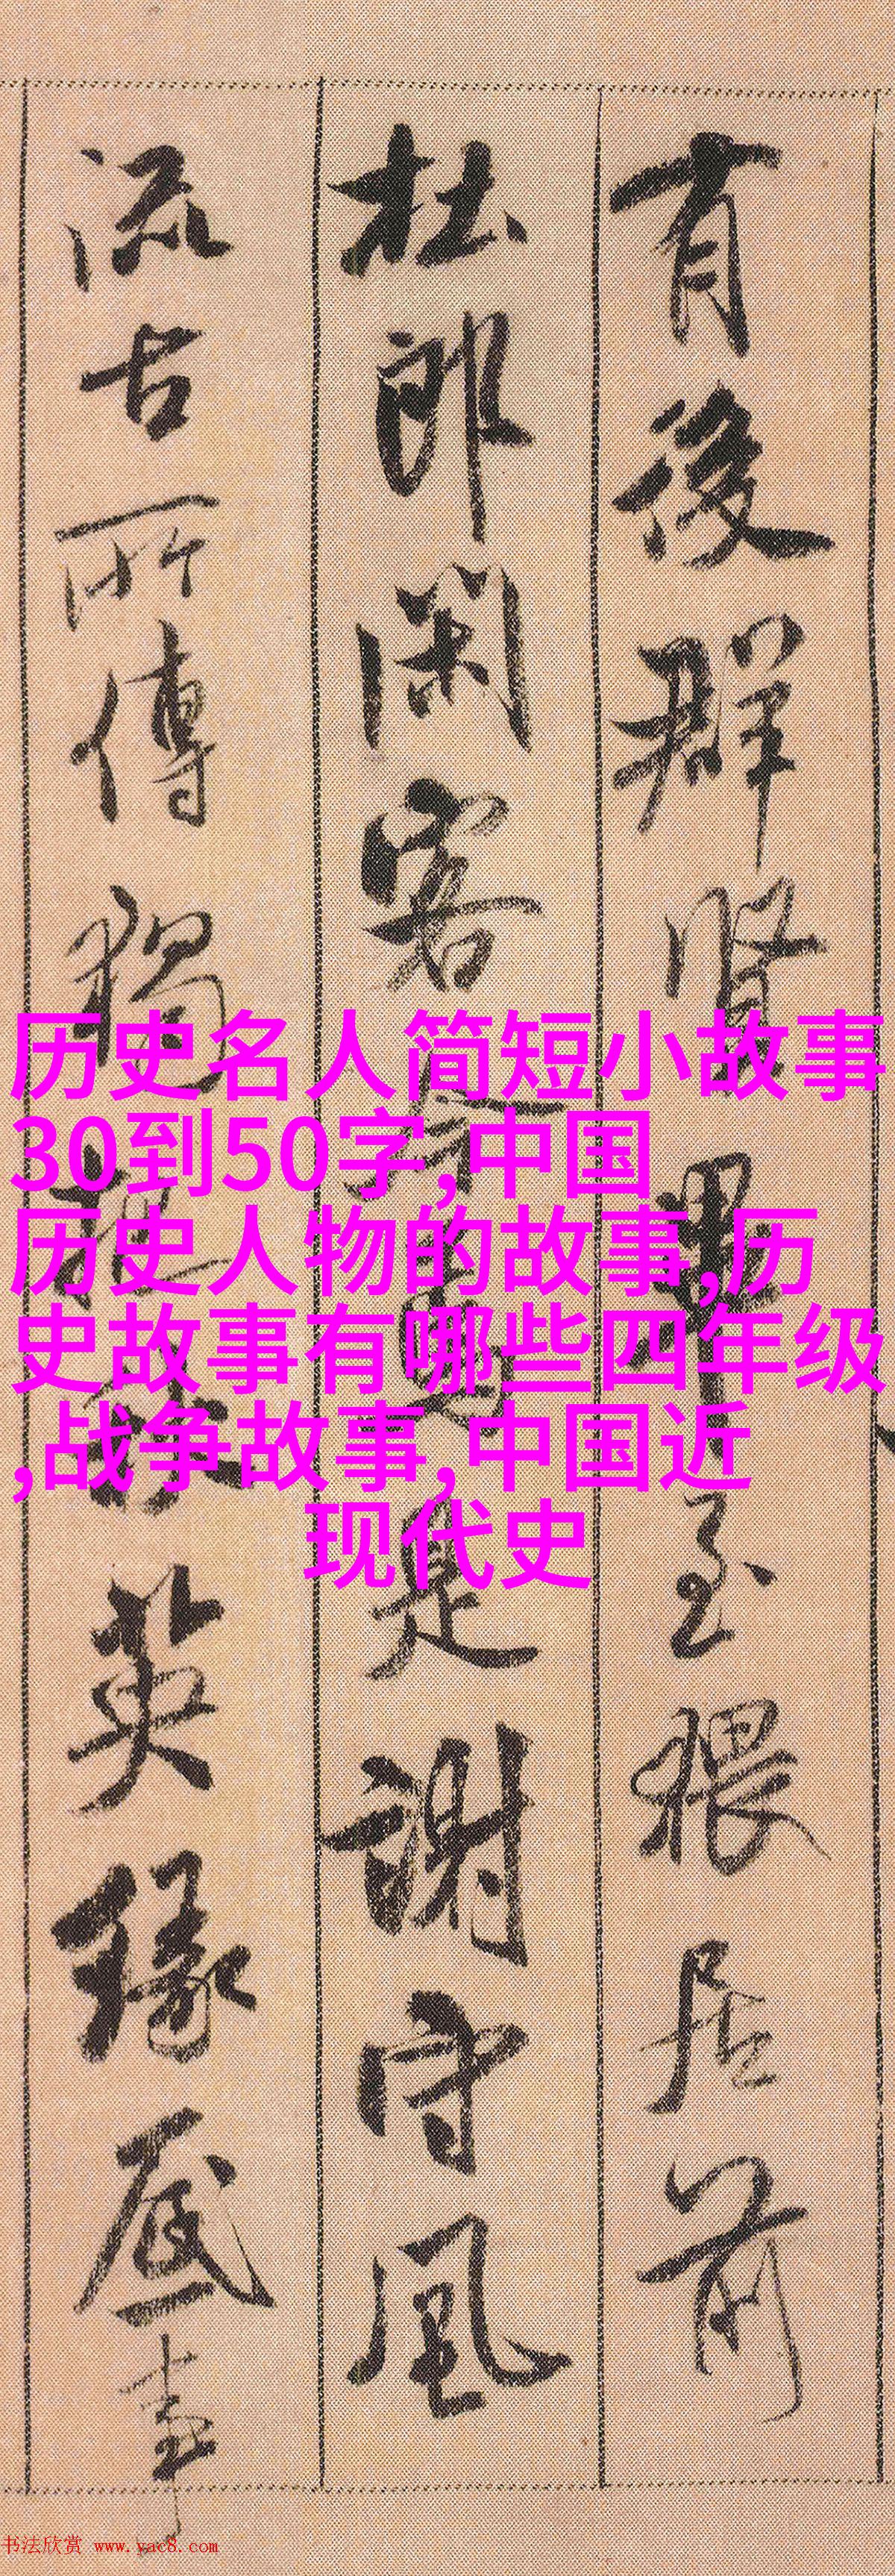 有後群賢畢至猥居前
杜郎閑客今焉是謝守風
流古所傳獨把秋英緣底事
历史名人简短小故事
30到50字,中国
历史人物的故事,历
史故事有哪些四年级
,战争故事,中国近
现代史
书法欣赏 www.yac8.com